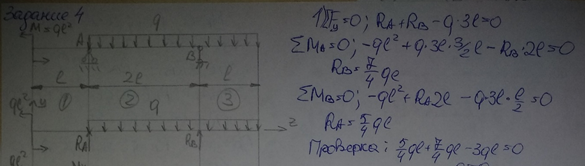 Задание 4
M=ql²
q
A
B
l
2l
l
①
②
③
ql²
y
q
z
RA
RB
ql²
1) ΣFy=0; RA+RB-q·3l=0
ΣMA=0; -ql²+q·3l·3/2l-RB·2l=0
RB=7/4ql
ΣMB=0; -ql²+RA2l-q·3l·l/2=0
RA=5/4ql
Проверка: 5/4ql+7/4ql-3ql=0